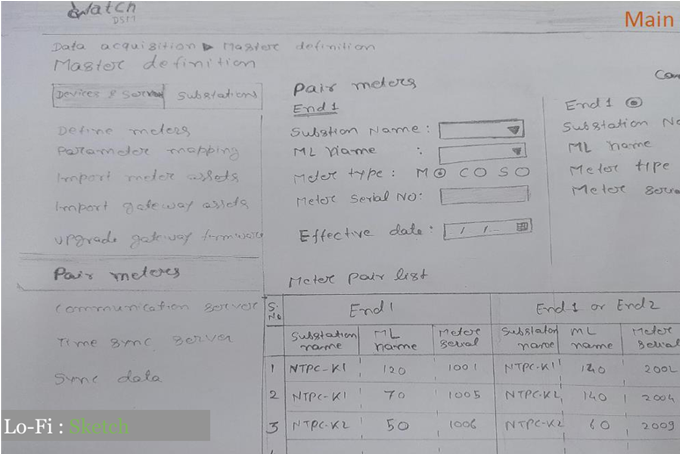 Watch
Main
Data acquisition ▶ Master definition
Master definition
Devices & Server
Substations
Define meters
Parameter mapping
Import meter assets
Import gateway assets
Upgrade gateway firmware
Pair meters
Communication server
Time sync server
Sync data
Pair meters
End 1
Substion Name :
ML Name :
Meter type : M C S
Meter Serial NO:
Effective date : / /
End 1
Substation
ML Name
Meter type
Meter
Meter pair list
S. No
End 1
End 1 or End 2
Substation name
ML name
Meter Serial
Substation name
ML name
Meter Serial
1 NTPC-K1 120 1001 NTPC-K1 120
2 NTPC-K1 70 1005 NTPC-K2 140 2004
3 NTPC-K2 50 1006 NTPC-K2 60 2009
Lo-Fi : Sketch